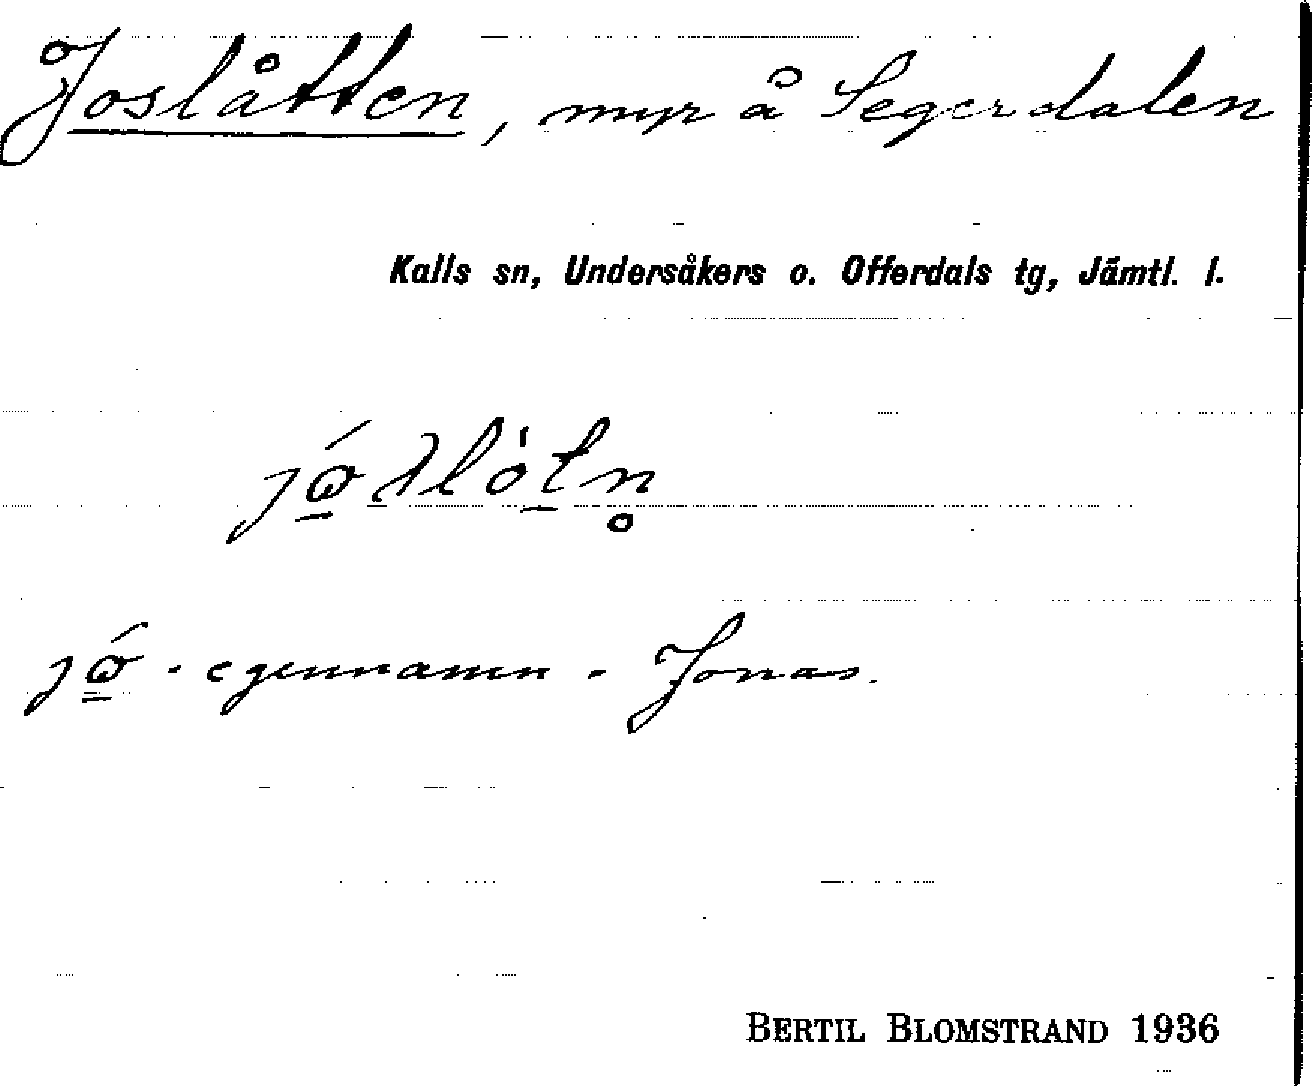 Joslåtten, myr å Segerdalen
Kalls sn, Undersåkers o. Offerdals tg, Jämtl. l.
jo - egennamn - Jonas.
BERTIL BLOMSTRAND 1936